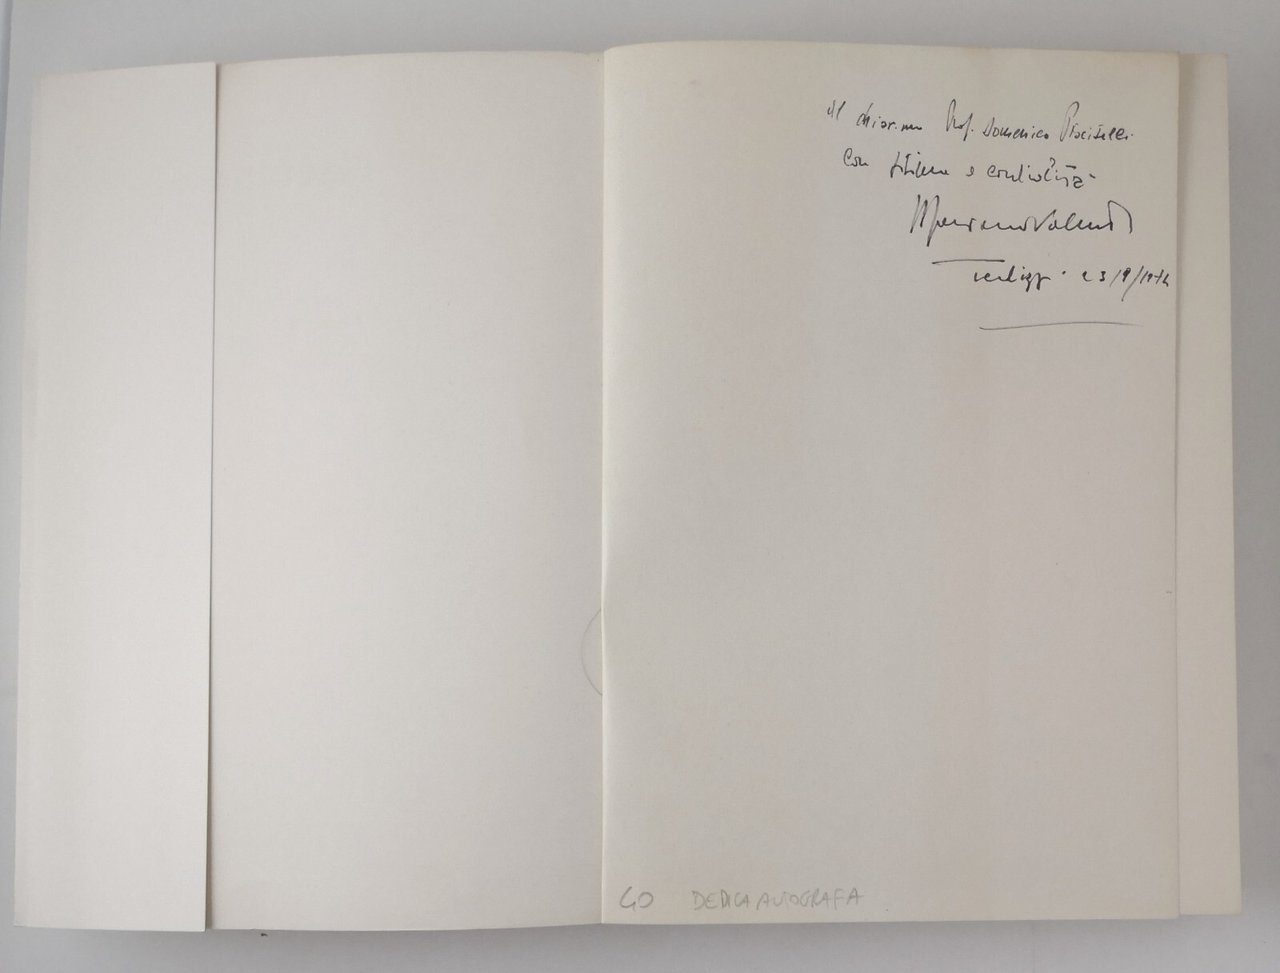 Al chiar.mo Prof. Domenico Piscitelli
Con stima e cordialità
Terlizzi 23/9/
40 DEDICA AUTOGRAFA